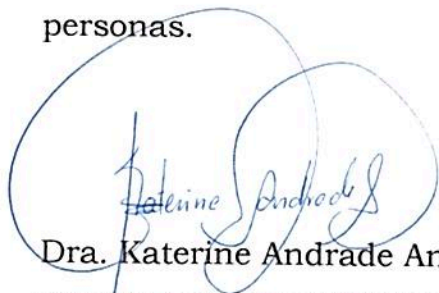 personas.
Katerine Andrade
Dra. Katerine Andrade An